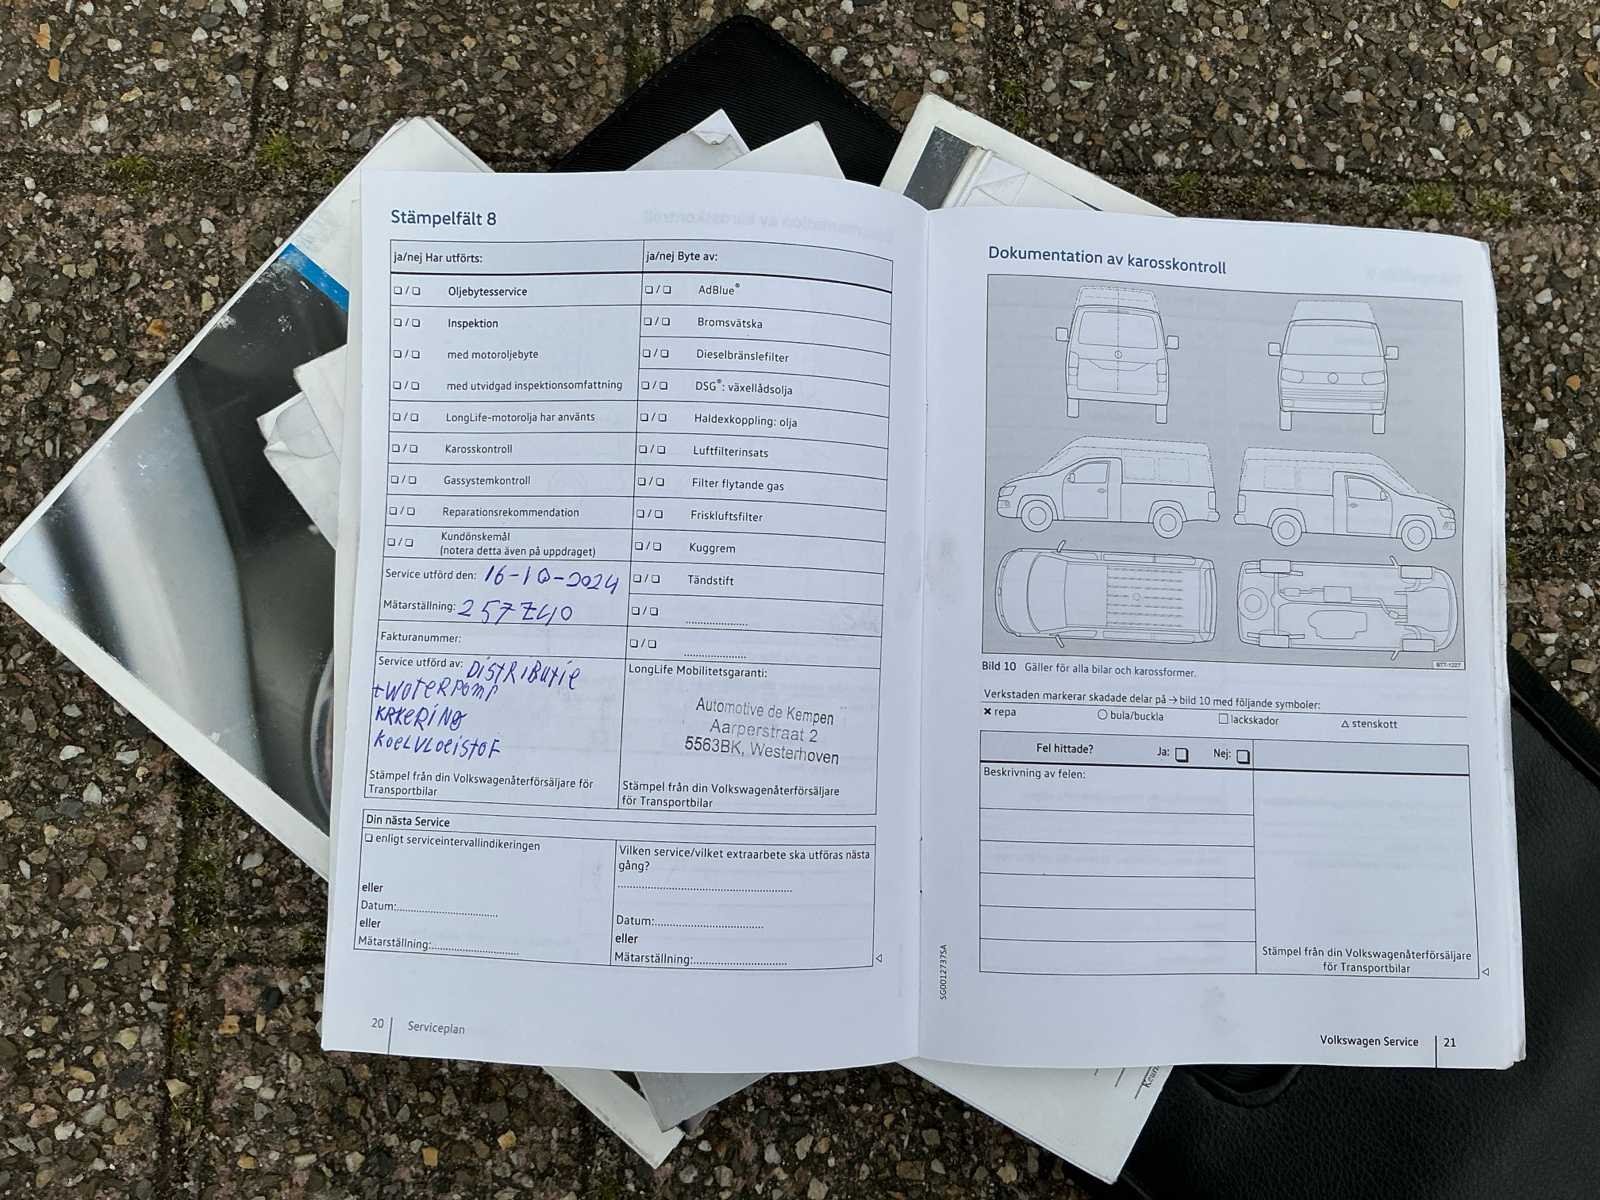 Stämpelfält 8
ja/nej Har utförts:
ja/nej Byte av:
❏ / ❏ Oljebytesservice
❏ / ❏ AdBlue®
❏ / ❏ Inspektion
❏ / ❏ Bromsvätska
❏ / ❏ med motoroljebyte
❏ / ❏ Dieselbränslefilter
❏ / ❏ med utvidgad inspektionsomfattning
❏ / ❏ DSG®: växellådsolja
❏ / ❏ LongLife-motorolja har använts
❏ / ❏ Haldexkoppling: olja
❏ / ❏ Karosskontroll
❏ / ❏ Luftfilterinsats
❏ / ❏ Gassystemkontroll
❏ / ❏ Filter flytande gas
❏ / ❏ Reparationsrekommendation
❏ / ❏ Friskluftsfilter
❏ / ❏ Kundönskemål
(notera detta även på uppdraget)
❏ / ❏ Kuggrem
Service utförd den: 16-10-2024
❏ / ❏ Tändstift
Mätarställning: 257740
❏ / ❏ ....................
Fakturanummer:
❏ / ❏ ....................
Service utförd av: DISTRIBUTIE
+WATERPOMP
KRKERING
KOELVLOEISTOF
Stämpel från din Volkswagenåterförsäljare för
Transportbilar
LongLife Mobilitetsgaranti:
Automotive de Kempen
Aarperstraat 2
5563BK, Westerhoven
Stämpel från din Volkswagenåterförsäljare
för Transportbilar
Din nästa Service
❏ enligt serviceintervallindikeringen
eller
Datum:..............................
eller
Mätarställning:..........................
Vilken service/vilket extraarbete ska utföras nästa
gång?
....................................................
Datum:................................
eller
Mätarställning:............................
20 Serviceplan
Dokumentation av karosskontroll
B7T-1227
Bild 10 Gäller för alla bilar och karossformer.
Verkstaden markerar skadade delar på → bild 10 med följande symboler:
✖ repa ○ bula/buckla □ lackskador △ stenskott
Fel hittade? Ja: ❏ Nej: ❏
Beskrivning av felen:
Stämpel från din Volkswagenåterförsäljare
för Transportbilar
SG0012737SA
Volkswagen Service 21